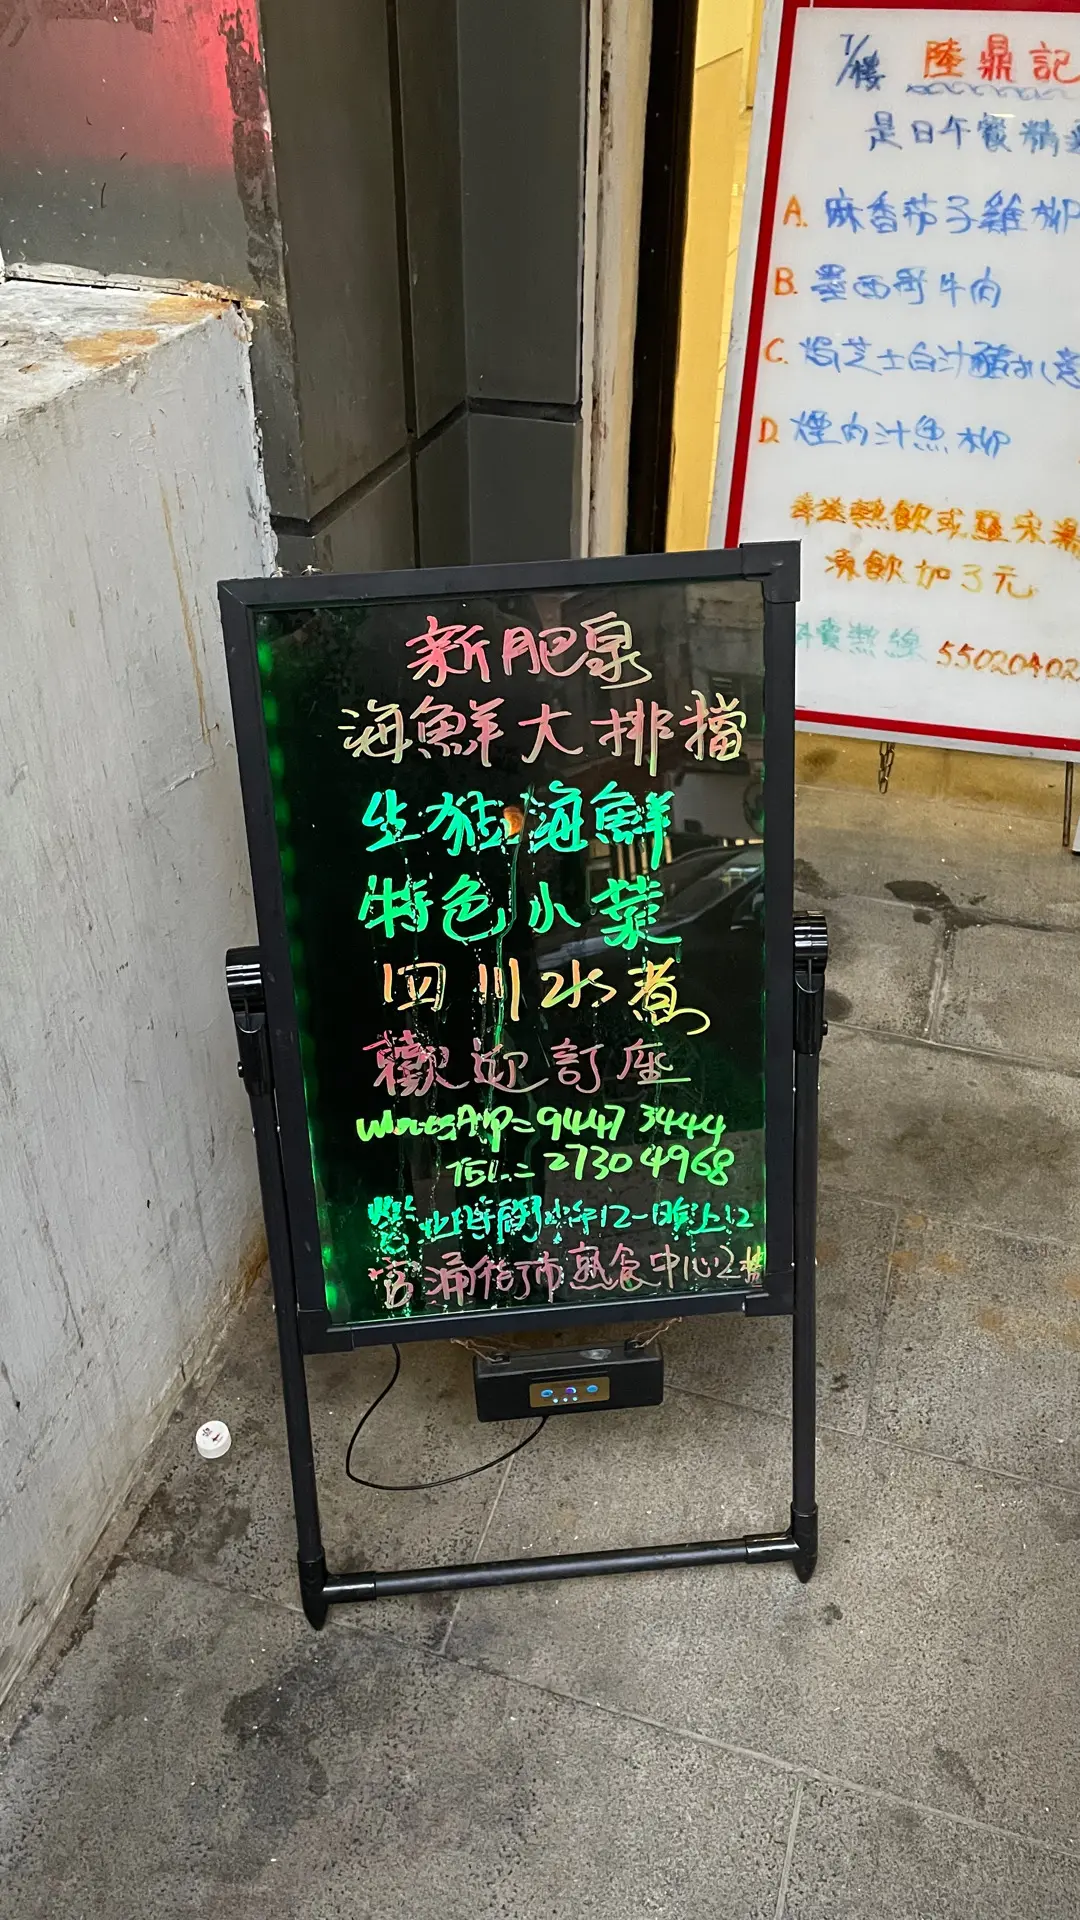 新肥泉
海鮮大排擋
生猛海鮮
特色小菜
四川水煮
歡迎訂座
WhatsApp=9447 3444
TEL.=2730 4968
營业時間中午12-晚上12
官涌街市熟食中心2樓
7/樓 陸鼎記
是日午餐精
A. 麻香茄子雞柳
B. 墨西哥牛肉
C. 焗芝士白汁豬扒意
D. 煙肉汁魚柳
奉送熱飲或羅宋湯
凍飲加3元
外賣熱線 55020402